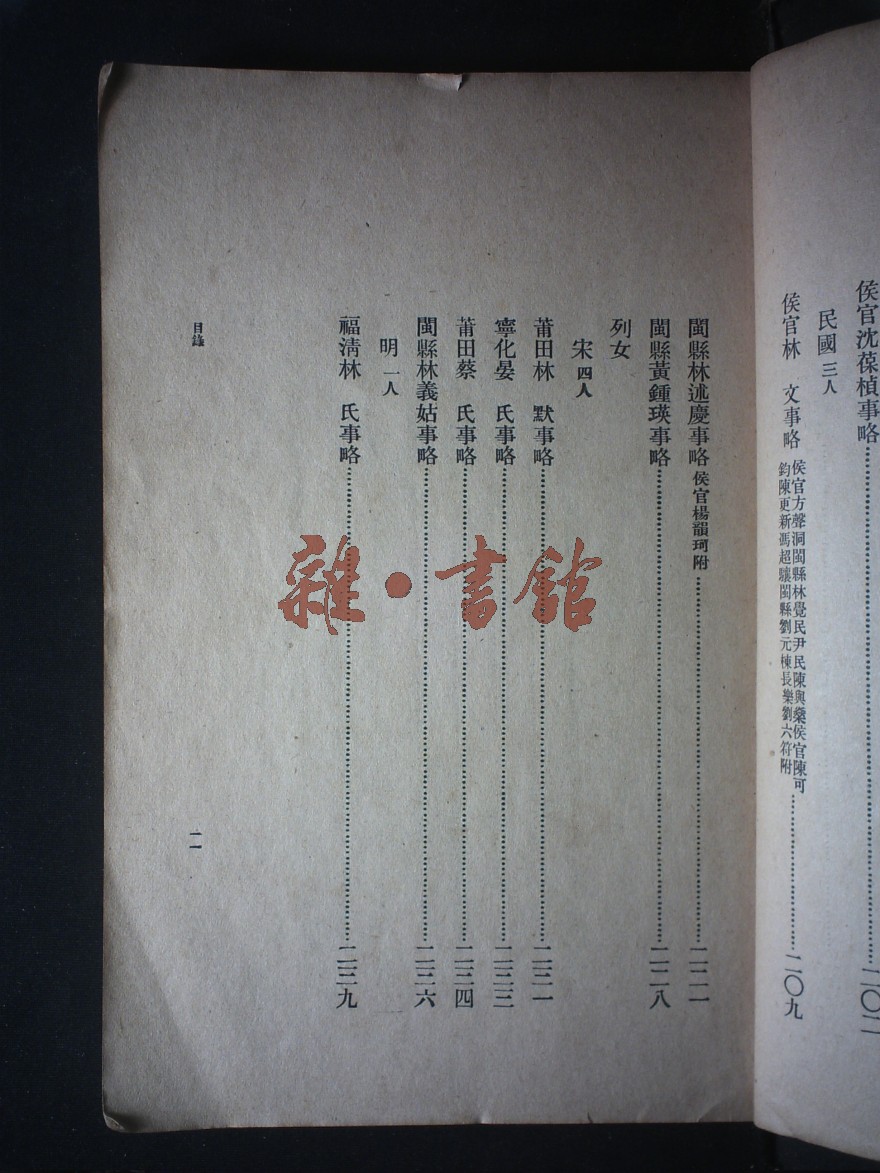 侯官沈葆楨事略………二〇二
民國 三人
侯官林　文事略 侯官方聲洞閩縣林覺民尹民陳與燊侯官陳可鈞陳更新馮超驤閩縣劉元棟長樂劉六符附………二〇九
閩縣林述慶事略 侯官楊韻珂附………二二一
閩縣黃鍾瑛事略………二二八
列女
宋 四人
莆田林　默事略………二三一
寧化晏　氏事略………二三三
莆田蔡　氏事略………二三四
閩縣林義姑事略………二三六
明 一人
福清林　氏事略………二三九
目錄
二
雜·書館